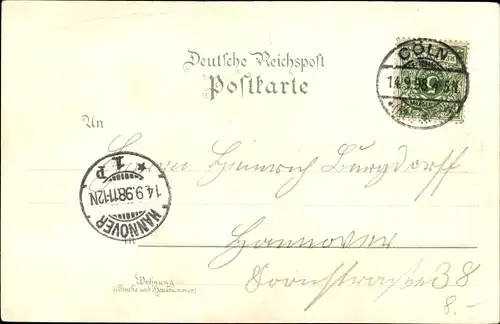 Deutsche Reichspost
Postkarte
CÖLN
14.9.98
5
An
Herrn Heinrich Burgdorff
Hannover
Cornstrasse 38
Wohnung
(Straße und Hausnummer)
8.-
HANNOVER
14.9.98.11-12N
* 1. P